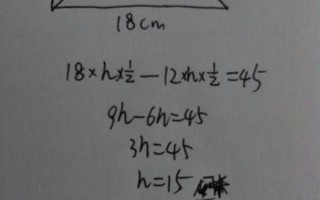 18cm
18×h×½−12×h×½=45
9h−6h=45
3h=45
h=15